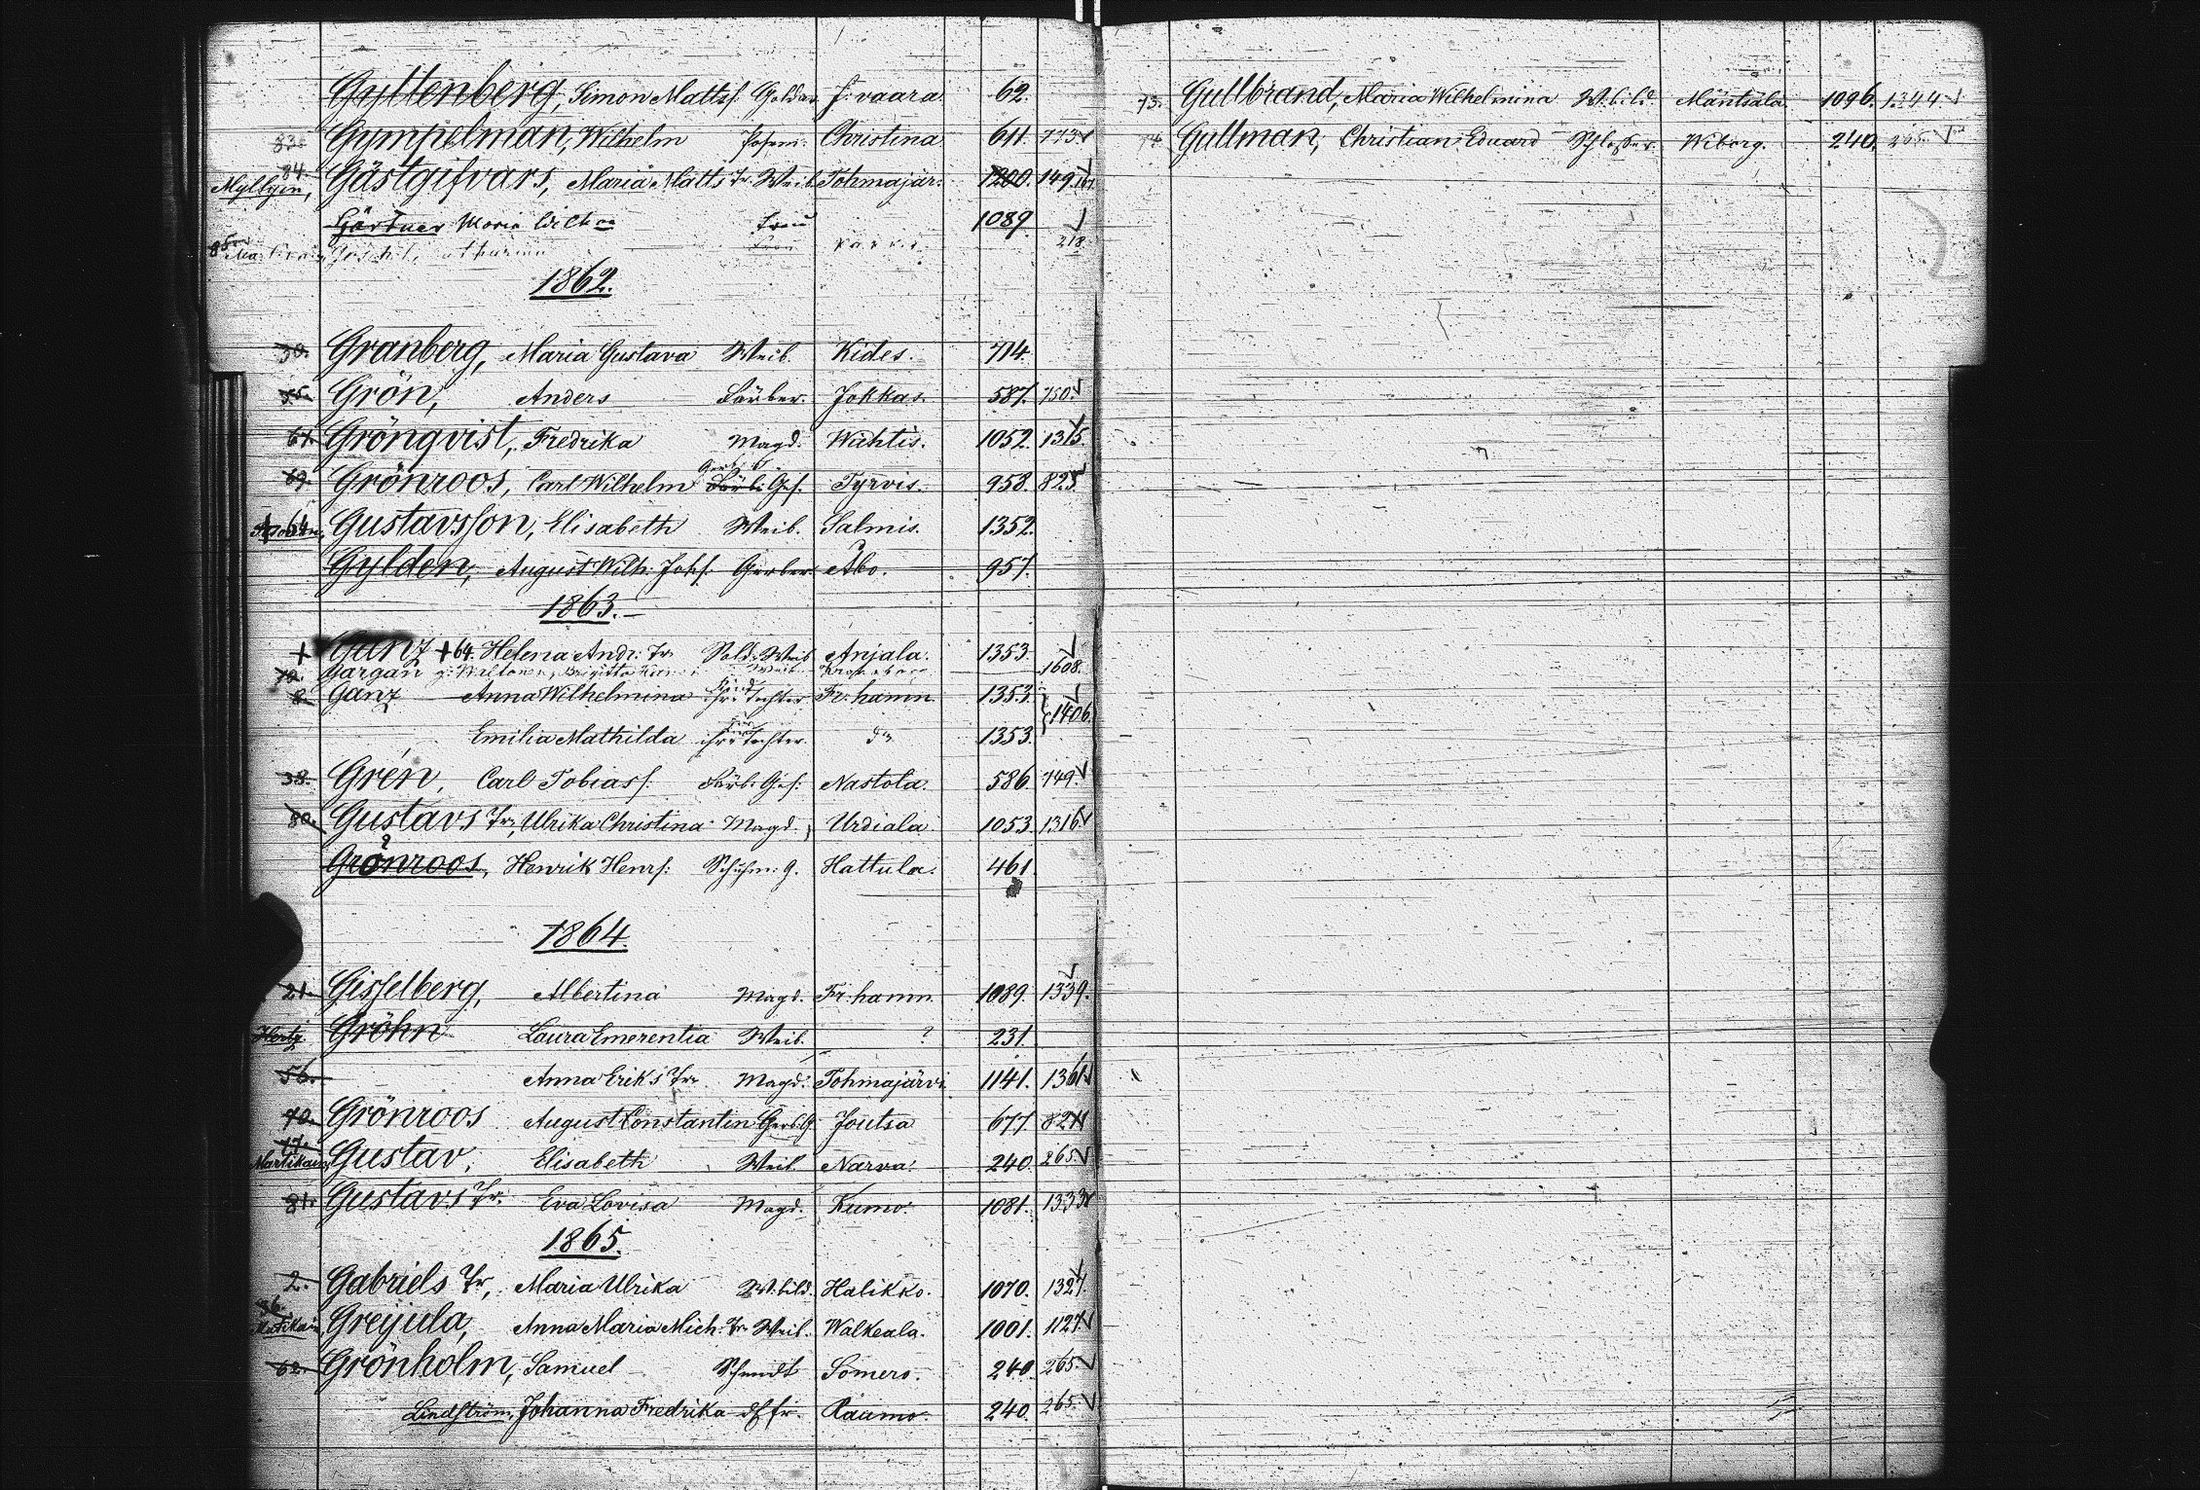 Gyltenberg, Simon Mattss. Goldar. 62.
83. Gympelman, Wilhelm Posem: Christina 611. 773
84. Myllyin, Gästgifvars, Maria Matts Tr. Weib. Tohmajär. 1200. 149
Gärtner Maria Frau 1089
85. 218
1862.
30. Granberg, Maria Gustava Weib. Kides. 714.
Grön, Anders Färber. Jokkas. 587. 750.
61. Grönqvist, Fredrika Magd. Wichtis. 1052. 1315.
69. Grönroos, Carl Wilhelm Färb: Ges. Tyrvis. 958. 825
+ 64. Gustavsson, Elisabeth Weib. Salmis. 1352.
Gylden, August Wilh: Johs. Gerber. Åbo. 957.
1863.
+ Ganz +64. Helena Andr: Tr. Sold: Weib Anjala. 1353.
72. Gargan Brigitta Weib. 1608.
8. Ganz Anna Wilhelmina ihre Tochter Fr: hamn. 1353. 1406.
Emilia Mathilda ihre Tochter. do 1353.
38. Grén, Carl Tobiass. Färb: Ges: Nastola. 586. 749.
80. Gustavs Tr, Ulrika Christina Magd. Urdiala. 1053. 1316.
Grönroos, Henrik Henrs: Schuhm: G. Hattula. 461.
1864.
21. Gisselberg, Albertina Magd. Fr: hamn. 1089. 1339.
Gröhn Laura Emerentia Weib. ? 231.
56. Anna Eriks Tr. Magd. Tohmajärvi. 1141. 1361.
70. Grönroos August Constantin Gerb. G. Joutsa 677. 824
77. Martikain, Gustav, Elisabeth Weib. Narva. 240. 265.
81. Gustavs Tr. Eva Lovisa Magd. Kumo. 1081. 1333
1865.
2. Gabriels Tr, Maria Ulrika W: bild. Halikko. 1070. 1327.
36. Greijula, Anna Maria Mich: Tr Weib. Walkeala. 1001. 1127.
62. Grönholm, Samuel Somero. 240. 265.
Lindström, Johanna Fredrika Raumo. 240. 265.
73. Gullbrand, Maria Wilhelmina W: bild. Mäntsälä. 1096. 1344.
74. Gullman, Christian Eduard Schlosser. Wiborg. 240. 265.